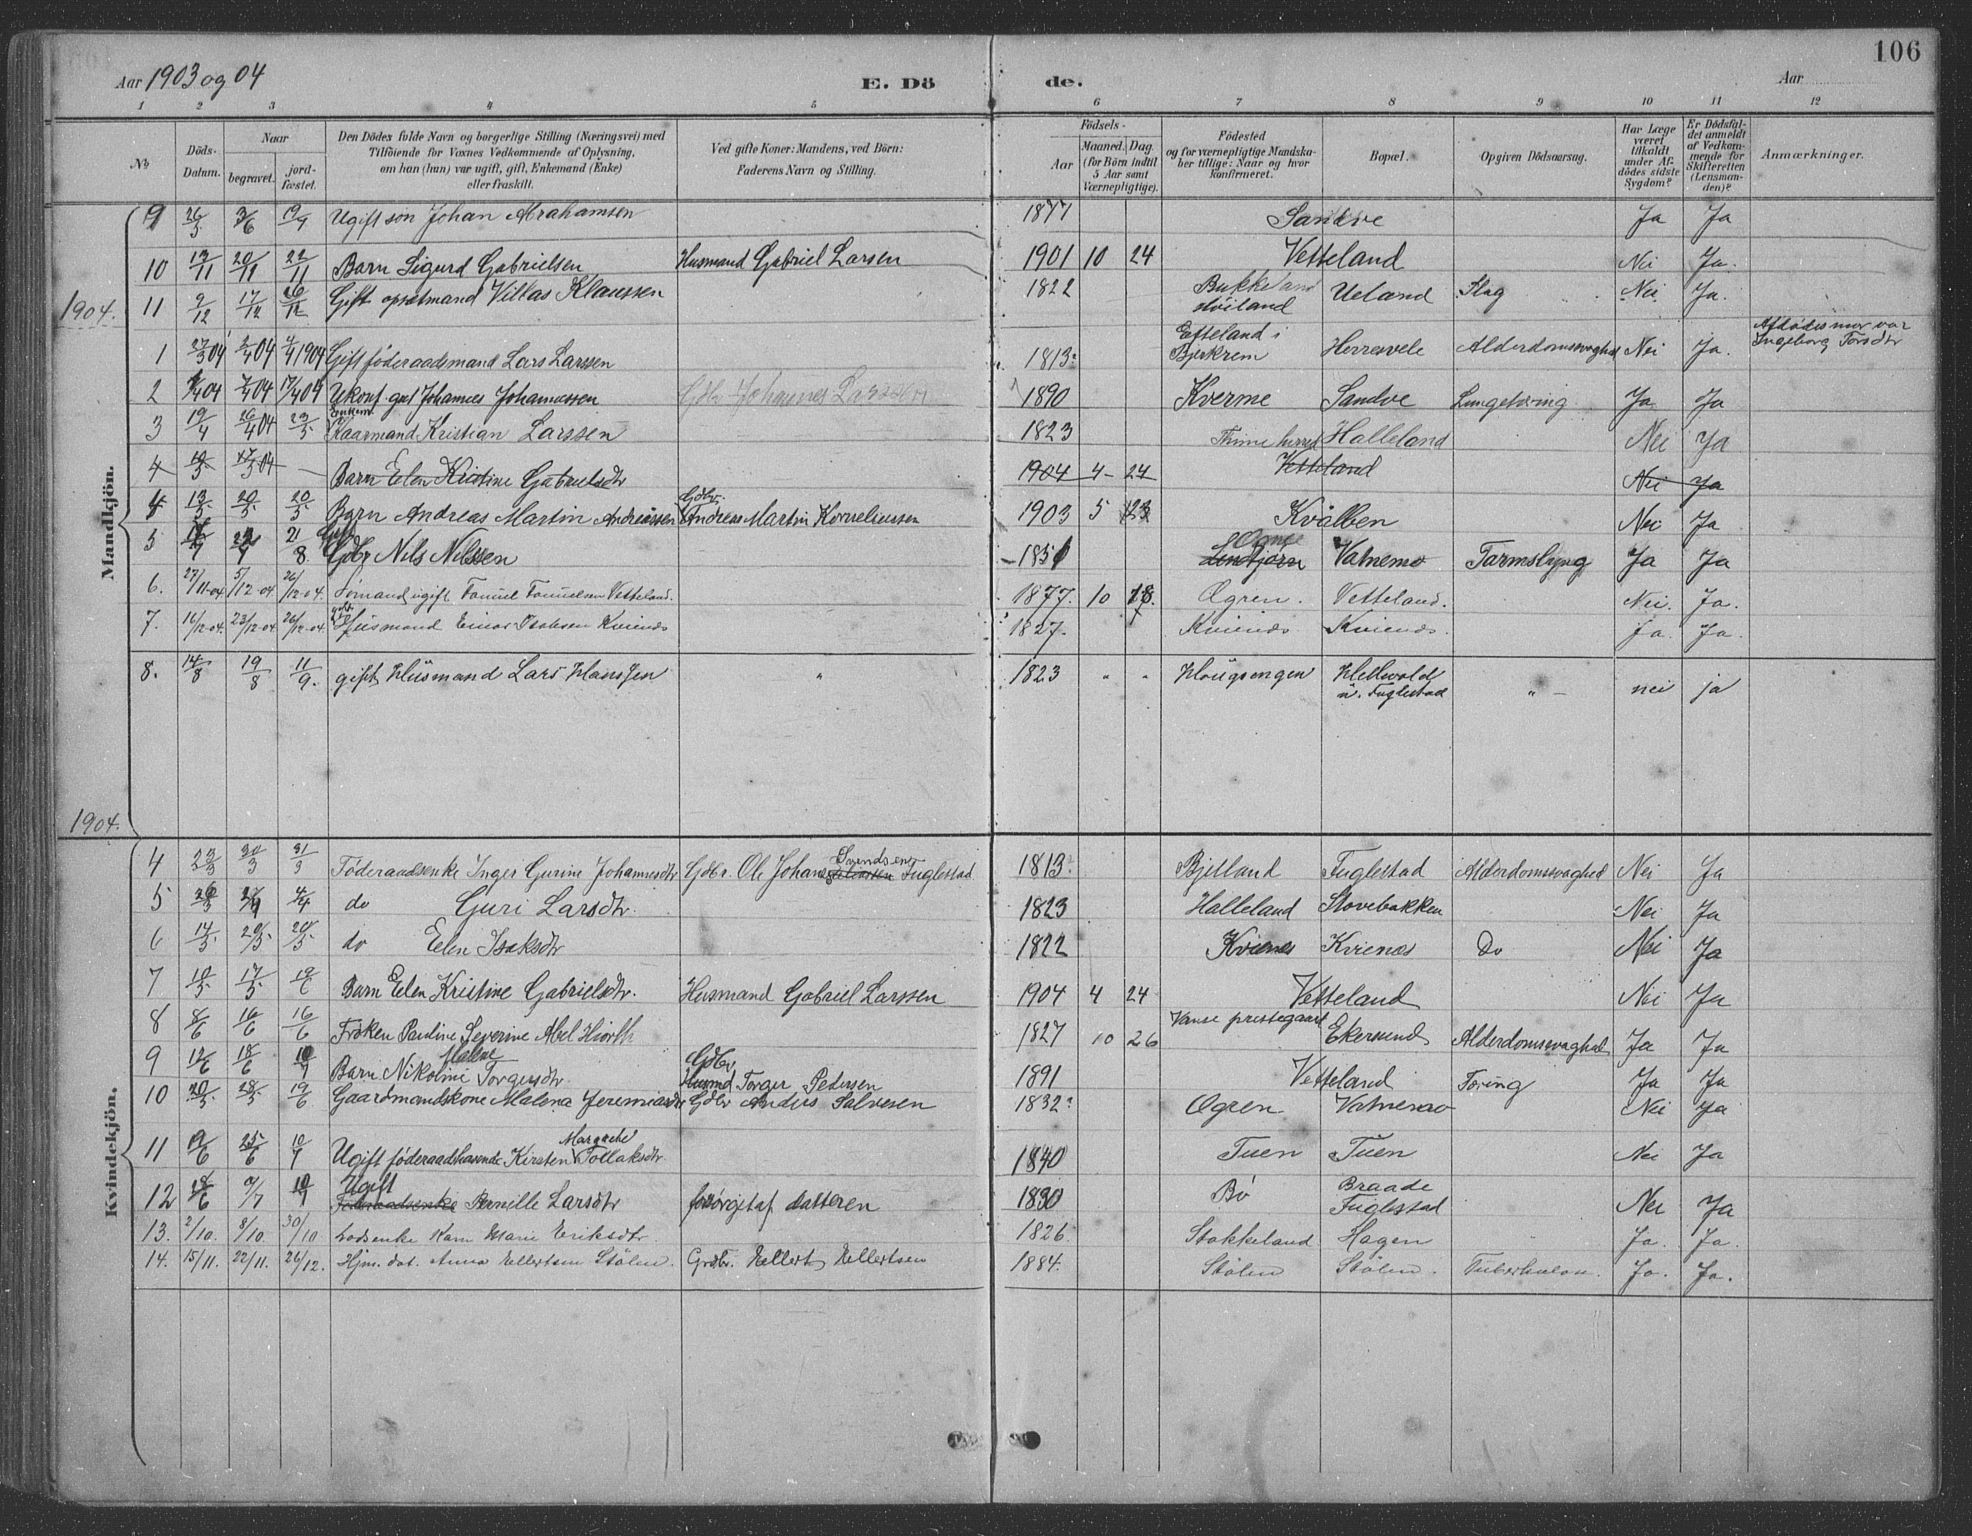 106
Aar 1903 og 04 E. Dö de. Aar
1 2 3 4 5 6 7 8 9 10 11 12
No Döds-Datum. Naar begravet. jordfæstet. Den Dödes fulde Navn og borgerlige Stilling (Næringsvei) med Tilföiende for Voxnes Vedkommende af Oplysning, om han (hun) var ugift, gift, Enkemand (Enke) eller fraskilt. Ved gifte Koner: Mandens, ved Börn: Faderens Navn og Stilling. Födsels- Aar Maaned. Dag. (for Börn indtil 5 Aar samt Værnepligtige). Födested og for værnepligtige Mandskaber tillige: Naar og hvor konfirmeret. Bopæl. Opgiven Dödsaarsag. Har Læge været tilkaldt under Afdödes sidste Sygdom? Er Dödsfaldet anmeldt af Vedkommende for Skifteretten (Lensmanden)? Anmærkninger.
Mandkjön.
9 26/5 3/6 19/7 Ugift søn Johan Abrahamsen 1877 Sandve Ja Ja
10 13/11 20/11 22/11 Barn Sigurd Gabrielsen Husmand Gabriel Larsen 1901 10 24 Vetteland Nei Ja.
11 9/12 17/12 26/12 Gift opsetmand Villas Klaussen 1822 Bukkeland Ueland Slag Nei Ja.
1904.
1 27/3 04 2/4 04 4/4 1904 Gift føderaadsmand Lars Larssen 1813? Efteland i Bjerkrem Herresvele Alderdomssvaghed Nei Ja. Afdødes mor var Ingeborg Torsdtr
2 1/4 04 7/4 04 17/4 04 Ukonf. gut Johannes Johannessen Gdbr Johannes Larssen 1890 Kverme Sandve Lungetæring Ja Ja
3 19/4 26/4 04 23/5 Enkem. Kaarmand Kristian Larssen 1823 Thime herred Halleland Nei Ja
4 10/5 17/5 04 Barn Elen Kristine Gabrielsdtr 1904 4 24 Vetteland Nei Ja
4 13/5 20/5 20/5 Barn Andreas Martin Andreassen Gdbr. Andreas Martin Korneliussen 1903 5 23 Kvålben Nei Ja
5 21/8 Gift Gdbr Nils Nilssen 1851 Ogne Vatnemo Tarmslyng Ja Ja
6. 27/11-04 5/12-04 26/12-04. Sømand, ugift Tønnel Tønnelsen Vetteland. 1877. 10 18. Øgren. Vetteland. Nei. Ja.
7. 16/12-04. 23/12-04 26/12-04. gift Husmand Einar Isaksen Kvienes 1827. Kvienes Kvienes. Ja. Ja.
8. 14/8 19/8 11/9. gift Husmand Lars Hansen " 1823 " " Hougsengen Hetlevold u. Fuglestad " nei ja
1904.
Kvindekjön.
4 23/3 30/3 31/3 Føderaadsenke Inger Gurine Johannesdtr Gdbr. Ole Johan Svendsen Fuglestad 1813? Bjelland Fuglestad Alderdomssvaghed Nei Ja
5 4/4 do Guri Larsdtr. 1823 Halleland Stovebakken Nei Ja
6 14/5 20/5 20/5 do Elen Isaksdtr 1822 Kvienes Kvienes Do Nei Ja
7 10/5 17/5 19/6 Barn Elen Kristine Gabrielsdtr. Husmand Gabriel Larssen 1904 4 24 Vetteland Nei Ja
8 8/6 16/6 16/6 Frøken Pauline Severine Abel Hiorth 1827 10 26 Vanse prestegaard Ekersund Alderdomssvaghed Ja Ja
9 12/6 18/6 10/7 Barn Nikoline Malene Torgersdtr Gdbr Husmd Torger Pedersen 1891 Vetteland Tæring Ja Ja
10 20/5 28/5 19/6 Gaardmandskone Malena Jeremiasdtr Gdbr Anders Salvesen 1832? Øgren Vatnemo Nei Ja
11 19/6 25/6 10/7 Ugift føderaadshavende Kirsten Margrethe Tollaksdtr 1840 Tuen Tuen Nei Ja
12 18/6 9/7 10/7 Ugift Føderaadsenke Pernille Larsdtr forsørget af datteren 1830 Bø Braade Fuglestad Nei Ja
13. 2/10. 8/10. 30/10 Lodsenke Karn Marie Eriksdtr. 1826. Stokkeland. Hagen Ja. Ja.
14. 15/11. 22/11. 26/12. Hjm. dat. Anna Ellertsen Stølen. Grdbr. Ellert Ellertsen 1884. Stølen Stølen. Tuberkulose. Ja. Ja.